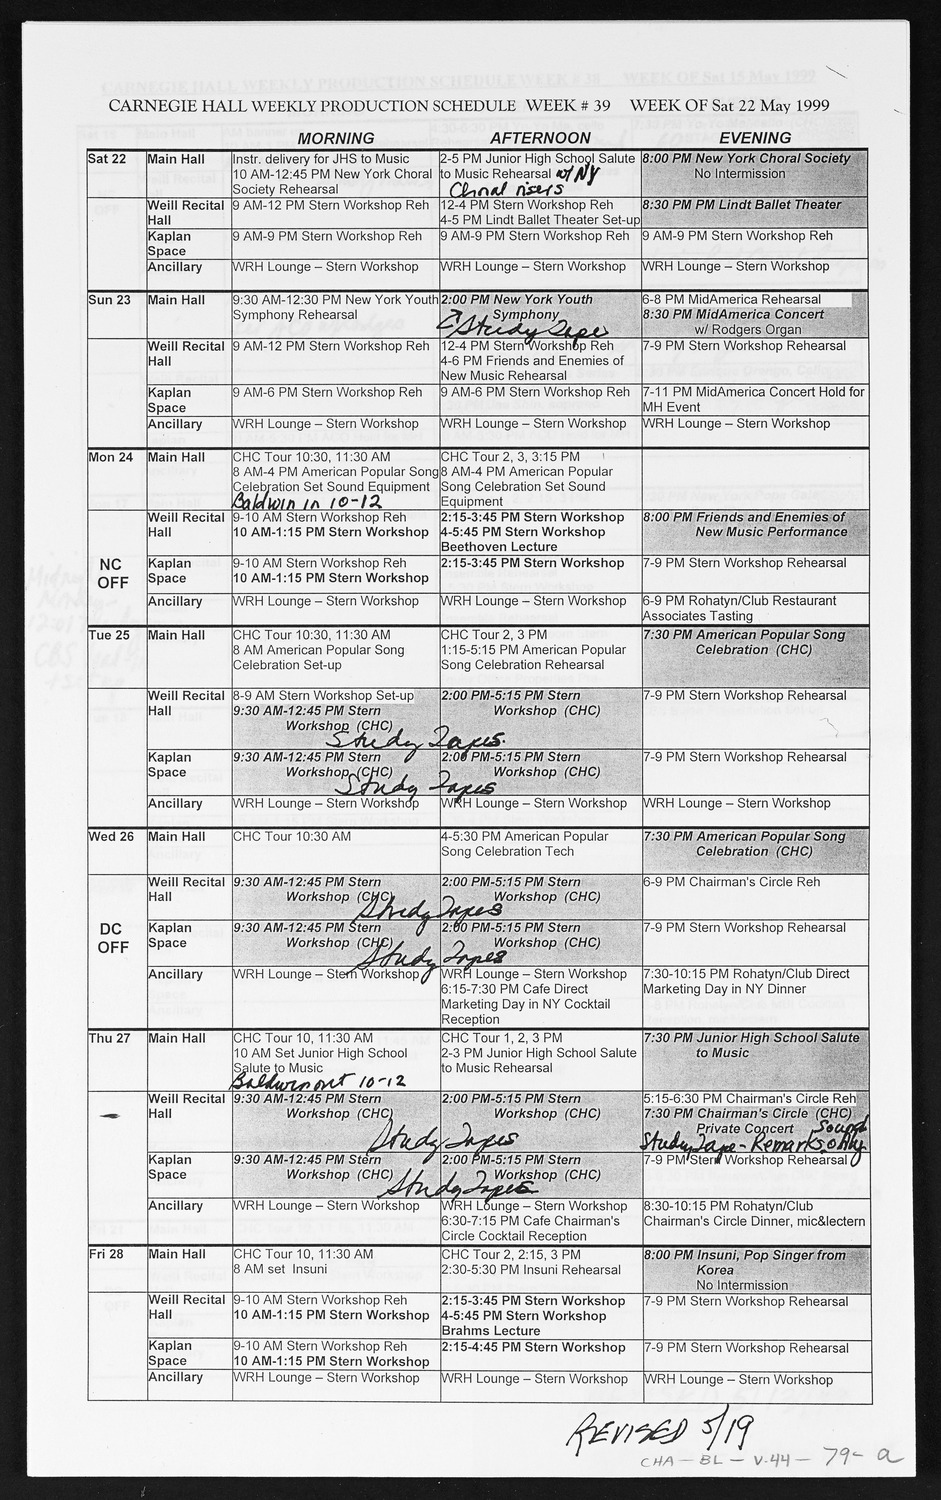 CARNEGIE HALL WEEKLY PRODUCTION SCHEDULE WEEK # 39 WEEK OF Sat 22 May 1999
MORNING AFTERNOON EVENING
Sat 22 Main Hall
Instr. delivery for JHS to Music
10 AM-12:45 PM New York Choral
Society Rehearsal
2-5 PM Junior High School Salute
to Music Rehearsal w/ NY
Choral risers
8:00 PM New York Choral Society
No Intermission
Weill Recital
Hall
9 AM-12 PM Stern Workshop Reh
12-4 PM Stern Workshop Reh
4-5 PM Lindt Ballet Theater Set-up
8:30 PM PM Lindt Ballet Theater
Kaplan
Space
9 AM-9 PM Stern Workshop Reh
9 AM-9 PM Stern Workshop Reh
9 AM-9 PM Stern Workshop Reh
Ancillary
WRH Lounge – Stern Workshop
WRH Lounge – Stern Workshop
WRH Lounge – Stern Workshop
Sun 23 Main Hall
9:30 AM-12:30 PM New York Youth
Symphony Rehearsal
2:00 PM New York Youth
Symphony
Study Tape
6-8 PM MidAmerica Rehearsal
8:30 PM MidAmerica Concert
w/ Rodgers Organ
Weill Recital
Hall
9 AM-12 PM Stern Workshop Reh
12-4 PM Stern Workshop Reh
4-6 PM Friends and Enemies of
New Music Rehearsal
7-9 PM Stern Workshop Rehearsal
Kaplan
Space
9 AM-6 PM Stern Workshop Reh
9 AM-6 PM Stern Workshop Reh
7-11 PM MidAmerica Concert Hold for
MH Event
Ancillary
WRH Lounge – Stern Workshop
WRH Lounge – Stern Workshop
WRH Lounge – Stern Workshop
Mon 24 Main Hall
CHC Tour 10:30, 11:30 AM
8 AM-4 PM American Popular Song
Celebration Set Sound Equipment
Baldwin in 10-12
CHC Tour 2, 3, 3:15 PM
8 AM-4 PM American Popular
Song Celebration Set Sound
Equipment
Weill Recital
Hall
9-10 AM Stern Workshop Reh
10 AM-1:15 PM Stern Workshop
2:15-3:45 PM Stern Workshop
4-5:45 PM Stern Workshop
Beethoven Lecture
8:00 PM Friends and Enemies of
New Music Performance
NC
OFF
Kaplan
Space
9-10 AM Stern Workshop Reh
10 AM-1:15 PM Stern Workshop
2:15-3:45 PM Stern Workshop
7-9 PM Stern Workshop Rehearsal
Ancillary
WRH Lounge – Stern Workshop
WRH Lounge – Stern Workshop
6-9 PM Rohatyn/Club Restaurant
Associates Tasting
Tue 25 Main Hall
CHC Tour 10:30, 11:30 AM
8 AM American Popular Song
Celebration Set-up
CHC Tour 2, 3 PM
1:15-5:15 PM American Popular
Song Celebration Rehearsal
7:30 PM American Popular Song
Celebration (CHC)
Weill Recital
Hall
8-9 AM Stern Workshop Set-up
9:30 AM-12:45 PM Stern
Workshop (CHC)
2:00 PM-5:15 PM Stern
Workshop (CHC)
Study Tapes.
7-9 PM Stern Workshop Rehearsal
Kaplan
Space
9:30 AM-12:45 PM Stern
Workshop (CHC)
2:00 PM-5:15 PM Stern
Workshop (CHC)
Study Tapes
7-9 PM Stern Workshop Rehearsal
Ancillary
WRH Lounge – Stern Workshop
WRH Lounge – Stern Workshop
WRH Lounge – Stern Workshop
Wed 26 Main Hall
CHC Tour 10:30 AM
4-5:30 PM American Popular
Song Celebration Tech
7:30 PM American Popular Song
Celebration (CHC)
Weill Recital
Hall
9:30 AM-12:45 PM Stern
Workshop (CHC)
2:00 PM-5:15 PM Stern
Workshop (CHC)
Study Tapes
6-9 PM Chairman's Circle Reh
DC
OFF
Kaplan
Space
9:30 AM-12:45 PM Stern
Workshop (CHC)
2:00 PM-5:15 PM Stern
Workshop (CHC)
Study Tapes
7-9 PM Stern Workshop Rehearsal
Ancillary
WRH Lounge – Stern Workshop
WRH Lounge – Stern Workshop
6:15-7:30 PM Cafe Direct
Marketing Day in NY Cocktail
Reception
7:30-10:15 PM Rohatyn/Club Direct
Marketing Day in NY Dinner
Thu 27 Main Hall
CHC Tour 10, 11:30 AM
10 AM Set Junior High School
Salute to Music
Baldwin out 10-12
CHC Tour 1, 2, 3 PM
2-3 PM Junior High School Salute
to Music Rehearsal
7:30 PM Junior High School Salute
to Music
Weill Recital
Hall
9:30 AM-12:45 PM Stern
Workshop (CHC)
2:00 PM-5:15 PM Stern
Workshop (CHC)
Study Tapes
5:15-6:30 PM Chairman's Circle Reh
7:30 PM Chairman's Circle (CHC)
Private Concert Sound
Study Tape - Remarks only
Kaplan
Space
9:30 AM-12:45 PM Stern
Workshop (CHC)
2:00 PM-5:15 PM Stern
Workshop (CHC)
Study Tapes
7-9 PM Stern Workshop Rehearsal
Ancillary
WRH Lounge – Stern Workshop
WRH Lounge – Stern Workshop
6:30-7:15 PM Cafe Chairman's
Circle Cocktail Reception
8:30-10:15 PM Rohatyn/Club
Chairman's Circle Dinner, mic&lectern
Fri 28 Main Hall
CHC Tour 10, 11:30 AM
8 AM set Insuni
CHC Tour 2, 2:15, 3 PM
2:30-5:30 PM Insuni Rehearsal
8:00 PM Insuni, Pop Singer from
Korea
No Intermission
Weill Recital
Hall
9-10 AM Stern Workshop Reh
10 AM-1:15 PM Stern Workshop
2:15-3:45 PM Stern Workshop
4-5:45 PM Stern Workshop
Brahms Lecture
7-9 PM Stern Workshop Rehearsal
Kaplan
Space
9-10 AM Stern Workshop Reh
10 AM-1:15 PM Stern Workshop
2:15-4:45 PM Stern Workshop
7-9 PM Stern Workshop Rehearsal
Ancillary
WRH Lounge – Stern Workshop
WRH Lounge – Stern Workshop
WRH Lounge – Stern Workshop
REVISED 5/19
CHA - BL - V.44 - 79- a